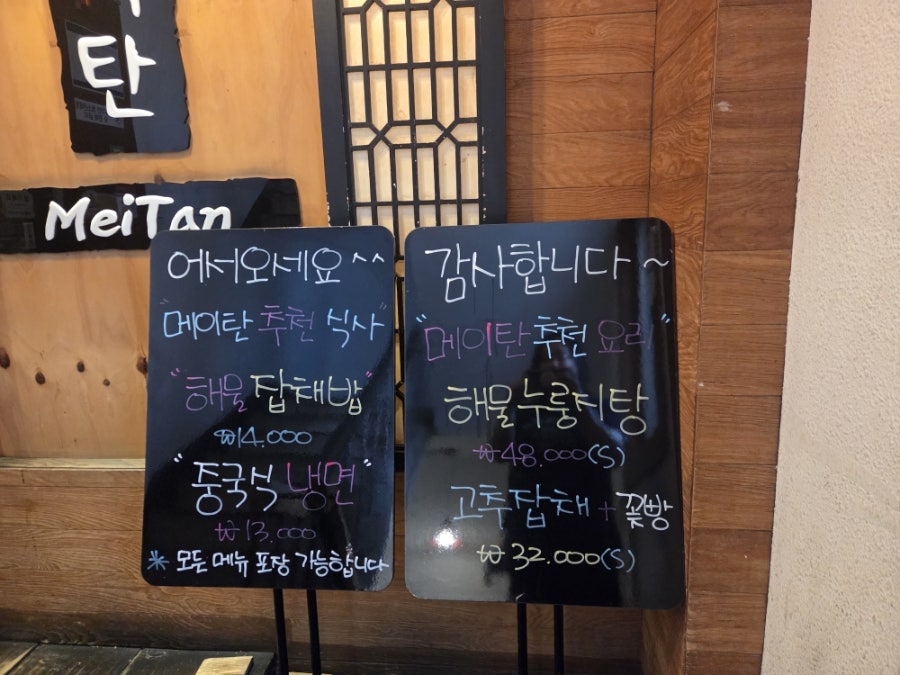 탄
MeiTan
어서오세요 ^^
"메이탄 추천 식사"
"해물 잡채밥"
₩14.000
"중국식 냉면"
₩13.000
* 모든 메뉴 포장 가능합니다
감사합니다 ~
"메이탄 추천 요리"
해물누룽지탕
₩48.000(S)
고추잡채 + 꽃빵
₩32.000(S)